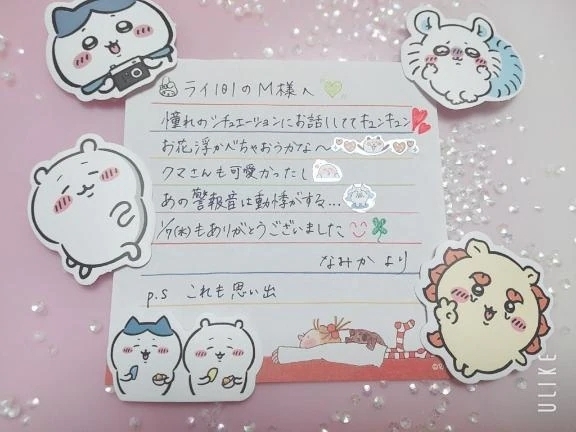 ライ181のM様へ
憧れのシチュエーションにお話ししててキュンキュン
お花浮かべちゃおうかな〜
クマさんも可愛かったし
あの警報音は動悸がする…
1/7(水)もありがとうございました
なみかより
p.s これも思い出
ULIKE